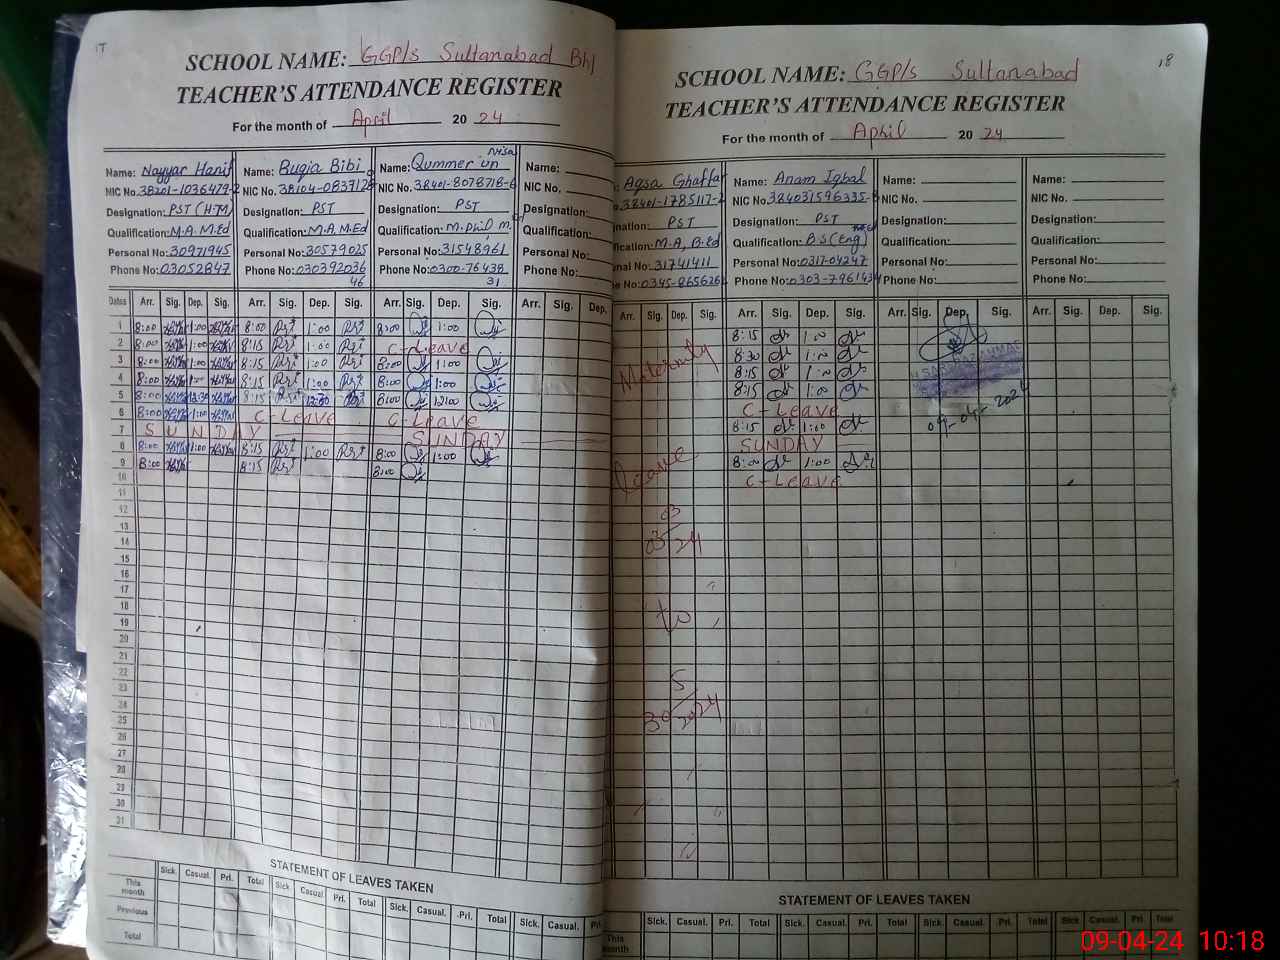 17
SCHOOL NAME: GGP/s Sultanabad Bhl
TEACHER'S ATTENDANCE REGISTER
For the month of April 20 24
Name: Nayyar Hanif Name: Ruqia Bibi Name: Qummer un Nisa Name:
NIC No. 38201-1036479-2 NIC No. 38104-0837128 NIC No. 38401-8078718-6 NIC No.
Designation: PST (H.M) Designation: PST Designation: PST Designation:
Qualification: M.A. M.Ed Qualification: M.A. M.Ed Qualification: M.Phil Qualification:
Personal No: 30971945 Personal No: 30579025 Personal No: 31548961 Personal No:
Phone No: 03052847 Phone No: 030392036 46 Phone No: 0300-76438 31 Phone No:
Dates Arr. Sig. Dep. Sig. Arr. Sig. Dep. Sig. Arr. Sig. Dep. Sig. Arr. Sig. Dep.
1 8:00 1:00 8:00 1:00 8:00 1:00
2 8:00 1:00 8:15 1:00 C-Leave
3 8:00 1:00 8:15 1:00 8:00 1:00
4 8:00 8:15 1:00 8:00 1:00
5 8:00 12:30 8:15 12:30 8:00 12:00
6 8:00 1:00 C-Leave C-Leave
7 SUNDAY SUNDAY
8 8:00 1:00 8:15 1:00 8:00 1:00
9 8:00 8:15 8:00
10
11
12
13
14
15
16
17
18
19
20
21
22
23
24
25
26
27
28
29
30
31
STATEMENT OF LEAVES TAKEN
Sick. Casual. Pri. Total Sick. Casual. Pri. Total Sick. Casual. Pri. Total Sick. Casual. Pri.
This month
Previous
Total
18
SCHOOL NAME: GGP/s Sultanabad
TEACHER'S ATTENDANCE REGISTER
For the month of April 20 24
Aqsa Ghaffar Name: Anam Iqbal Name: Name:
38401-1785117-2 NIC No. 384031596335-8 NIC No. NIC No.
PST Designation: PST Designation: Designation:
M.A, B.Ed Qualification: B.S (Eng) Qualification: Qualification:
31741411 Personal No: 0317-04247 Personal No: Personal No:
0345-865626 Phone No: 0303-7961434 Phone No: Phone No:
Arr. Sig. Dep. Sig. Arr. Sig. Dep. Sig. Arr. Sig. Dep. Sig. Arr. Sig. Dep. Sig.
8:15 1:00
8:30 1:00
Maternity 8:15 1:00
8:15 1:00
C-Leave
8:15 1:00 09-04-202
SUNDAY
leave 8:00 1:00
C-Leave
03
03/24
to
5
30/2024
STATEMENT OF LEAVES TAKEN
Sick. Casual. Pri. Total Sick. Casual. Pri. Total Sick. Casual. Pri. Total Sick. Casual. Pri. Total
This month
09-04-24 10:18